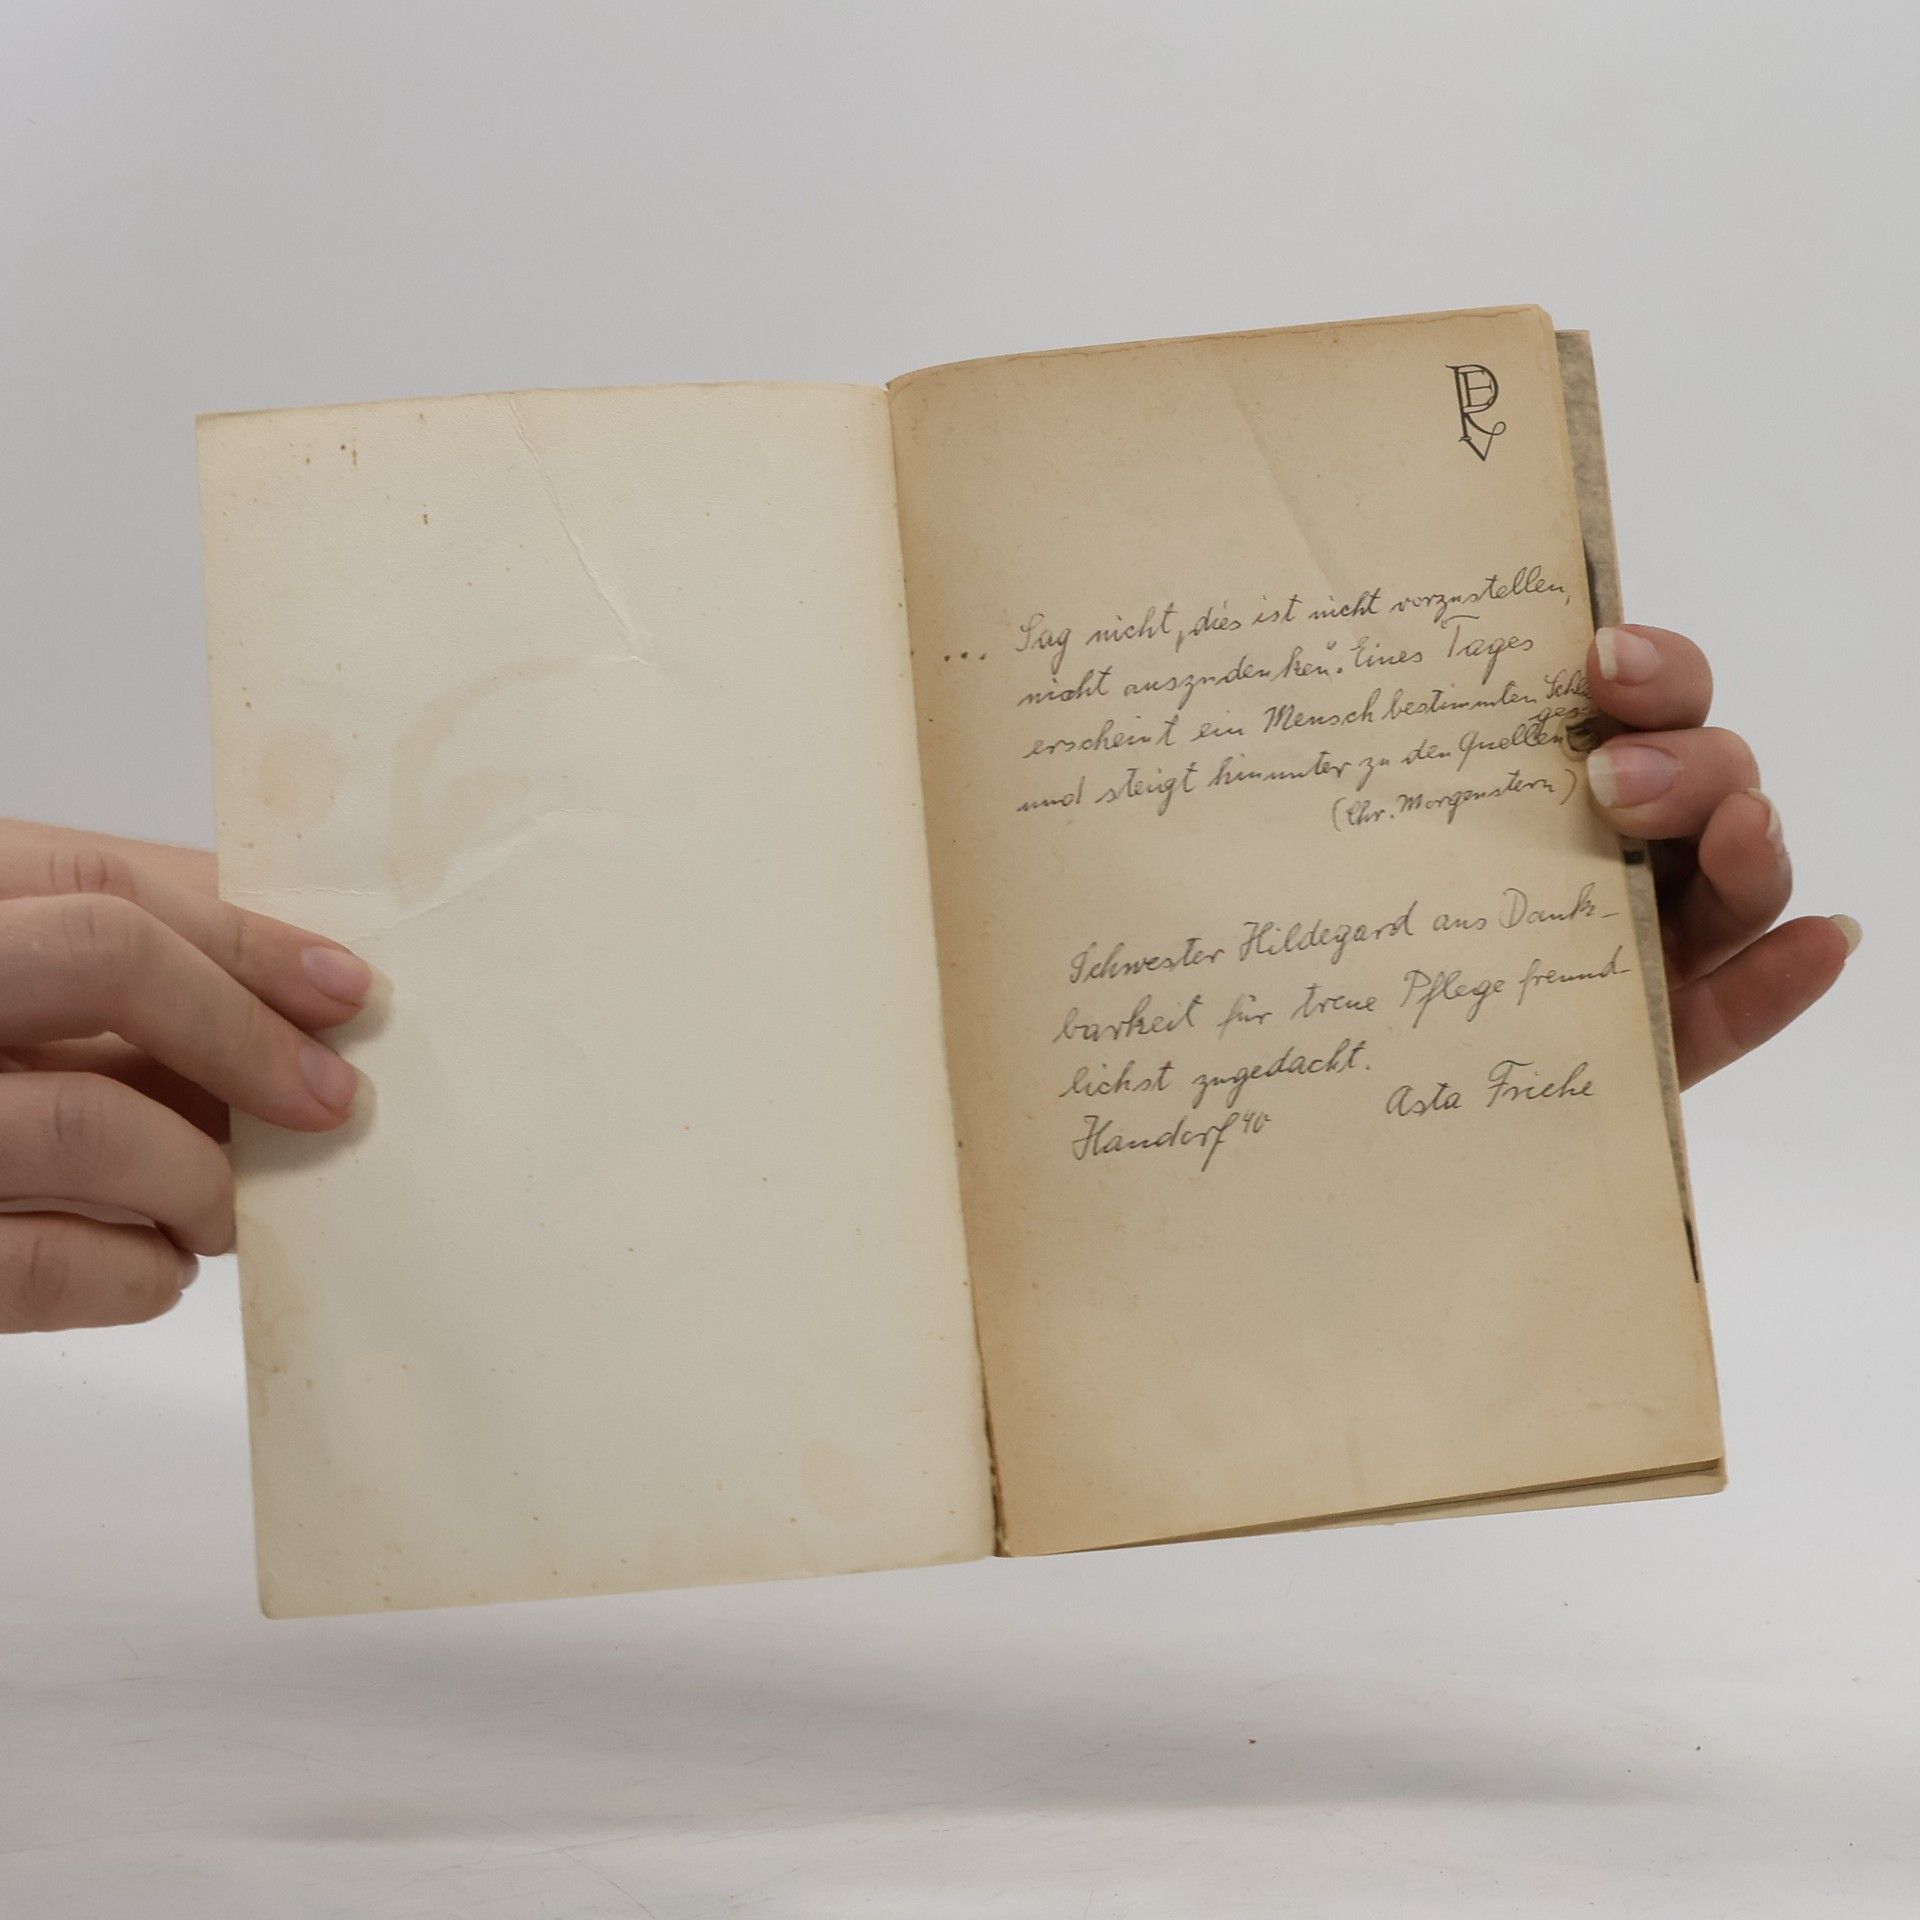 ... Sag nicht, „dies ist nicht vorzustellen,
nicht auszudenken". Eines Tages
erscheint ein Mensch bestimmten Schla-
ges
und steigt hinunter zu den Quellen
(Chr. Morgenstern)
Schwester Hildegard aus Dank-
barkeit für treue Pflege freund-
lichst zugedacht.
Handorf 40 Asta Friehe